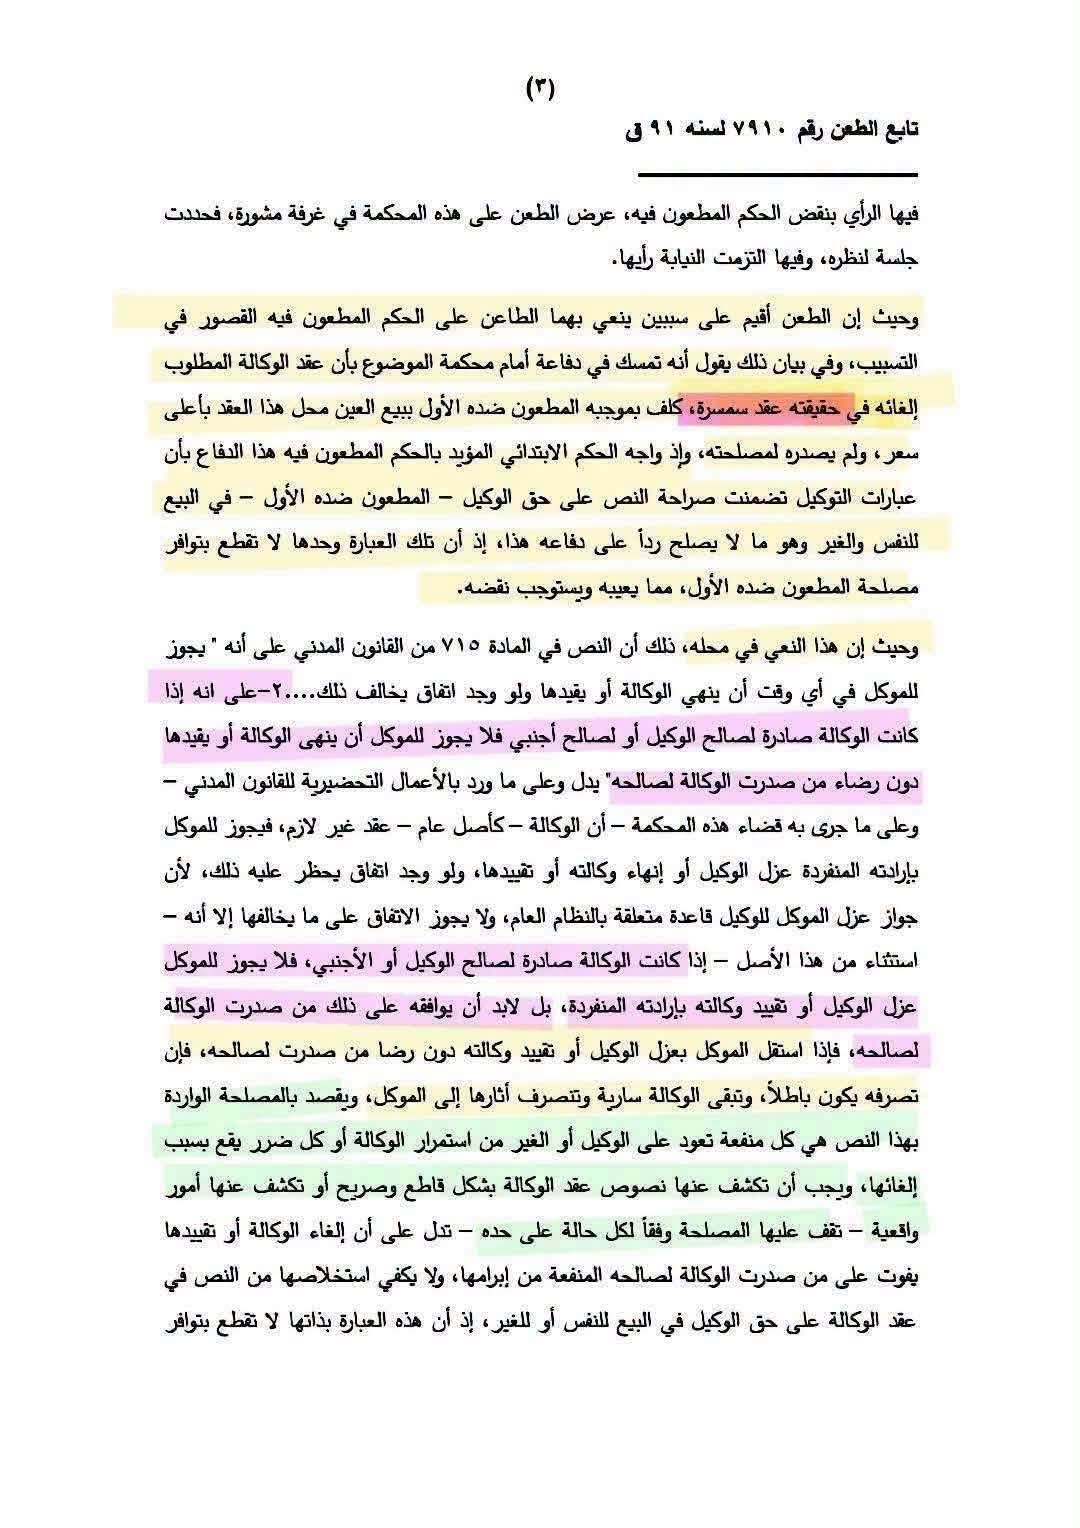 (٣)
تابع الطعن رقم ٧٩١٠ لسنه ٩١ ق
فيها الرأي بنقض الحكم المطعون فيه، عرض الطعن على هذه المحكمة في غرفة مشورة، فحددت
جلسة لنظره، وفيها التزمت النيابة رأيها.
وحيث إن الطعن أقيم على سببين ينعي بهما الطاعن على الحكم المطعون فيه القصور في
التسبيب، وفي بيان ذلك يقول أنه تمسك في دفاعة أمام محكمة الموضوع بأن عقد الوكالة المطلوب
إلغائه في حقيقته عقد سمسرة، كلف بموجبه المطعون ضده الأول ببيع العين محل هذا العقد بأعلى
سعر، ولم يصدره لمصلحته، وإذ واجه الحكم الابتدائي المؤيد بالحكم المطعون فيه هذا الدفاع بأن
عبارات التوكيل تضمنت صراحة النص على حق الوكيل – المطعون ضده الأول – في البيع
للنفس والغير وهو ما لا يصلح رداً على دفاعه هذا، إذ أن تلك العبارة وحدها لا تقطع بتوافر
مصلحة المطعون ضده الأول، مما يعيبه ويستوجب نقضه.
وحيث إن هذا النعي في محله، ذلك أن النص في المادة ٧١٥ من القانون المدني على أنه " يجوز
للموكل في أي وقت أن ينهي الوكالة أو يقيدها ولو وجد اتفاق يخالف ذلك....٢-على انه إذا
كانت الوكالة صادرة لصالح الوكيل أو لصالح أجنبي فلا يجوز للموكل أن ينهى الوكالة أو يقيدها
دون رضاء من صدرت الوكالة لصالحه" يدل وعلى ما ورد بالأعمال التحضيرية للقانون المدني –
وعلى ما جرى به قضاء هذه المحكمة – أن الوكالة – كأصل عام – عقد غير لازم، فيجوز للموكل
بإرادته المنفردة عزل الوكيل أو إنهاء وكالته أو تقييدها، ولو وجد اتفاق يحظر عليه ذلك، لأن
جواز عزل الموكل للوكيل قاعدة متعلقة بالنظام العام، ولا يجوز الاتفاق على ما يخالفها إلا أنه –
استثناء من هذا الأصل – إذا كانت الوكالة صادرة لصالح الوكيل أو الأجنبي، فلا يجوز للموكل
عزل الوكيل أو تقييد وكالته بإرادته المنفردة، بل لابد أن يوافقه على ذلك من صدرت الوكالة
لصالحه، فإذا استقل الموكل بعزل الوكيل أو تقييد وكالته دون رضا من صدرت لصالحه، فإن
تصرفه يكون باطلاً، وتبقى الوكالة سارية وتنصرف أثارها إلى الموكل، ويقصد بالمصلحة الواردة
بهذا النص هي كل منفعة تعود على الوكيل أو الغير من استمرار الوكالة أو كل ضرر يقع بسبب
إلغائها، ويجب أن تكشف عنها نصوص عقد الوكالة بشكل قاطع وصريح أو تكشف عنها أمور
واقعية – تقف عليها المصلحة وفقاً لكل حالة على حده – تدل على أن إلغاء الوكالة أو تقييدها
يفوت على من صدرت الوكالة لصالحه المنفعة من إبرامها، ولا يكفي استخلاصها من النص في
عقد الوكالة على حق الوكيل في البيع للنفس أو للغير، إذ أن هذه العبارة بذاتها لا تقطع بتوافر